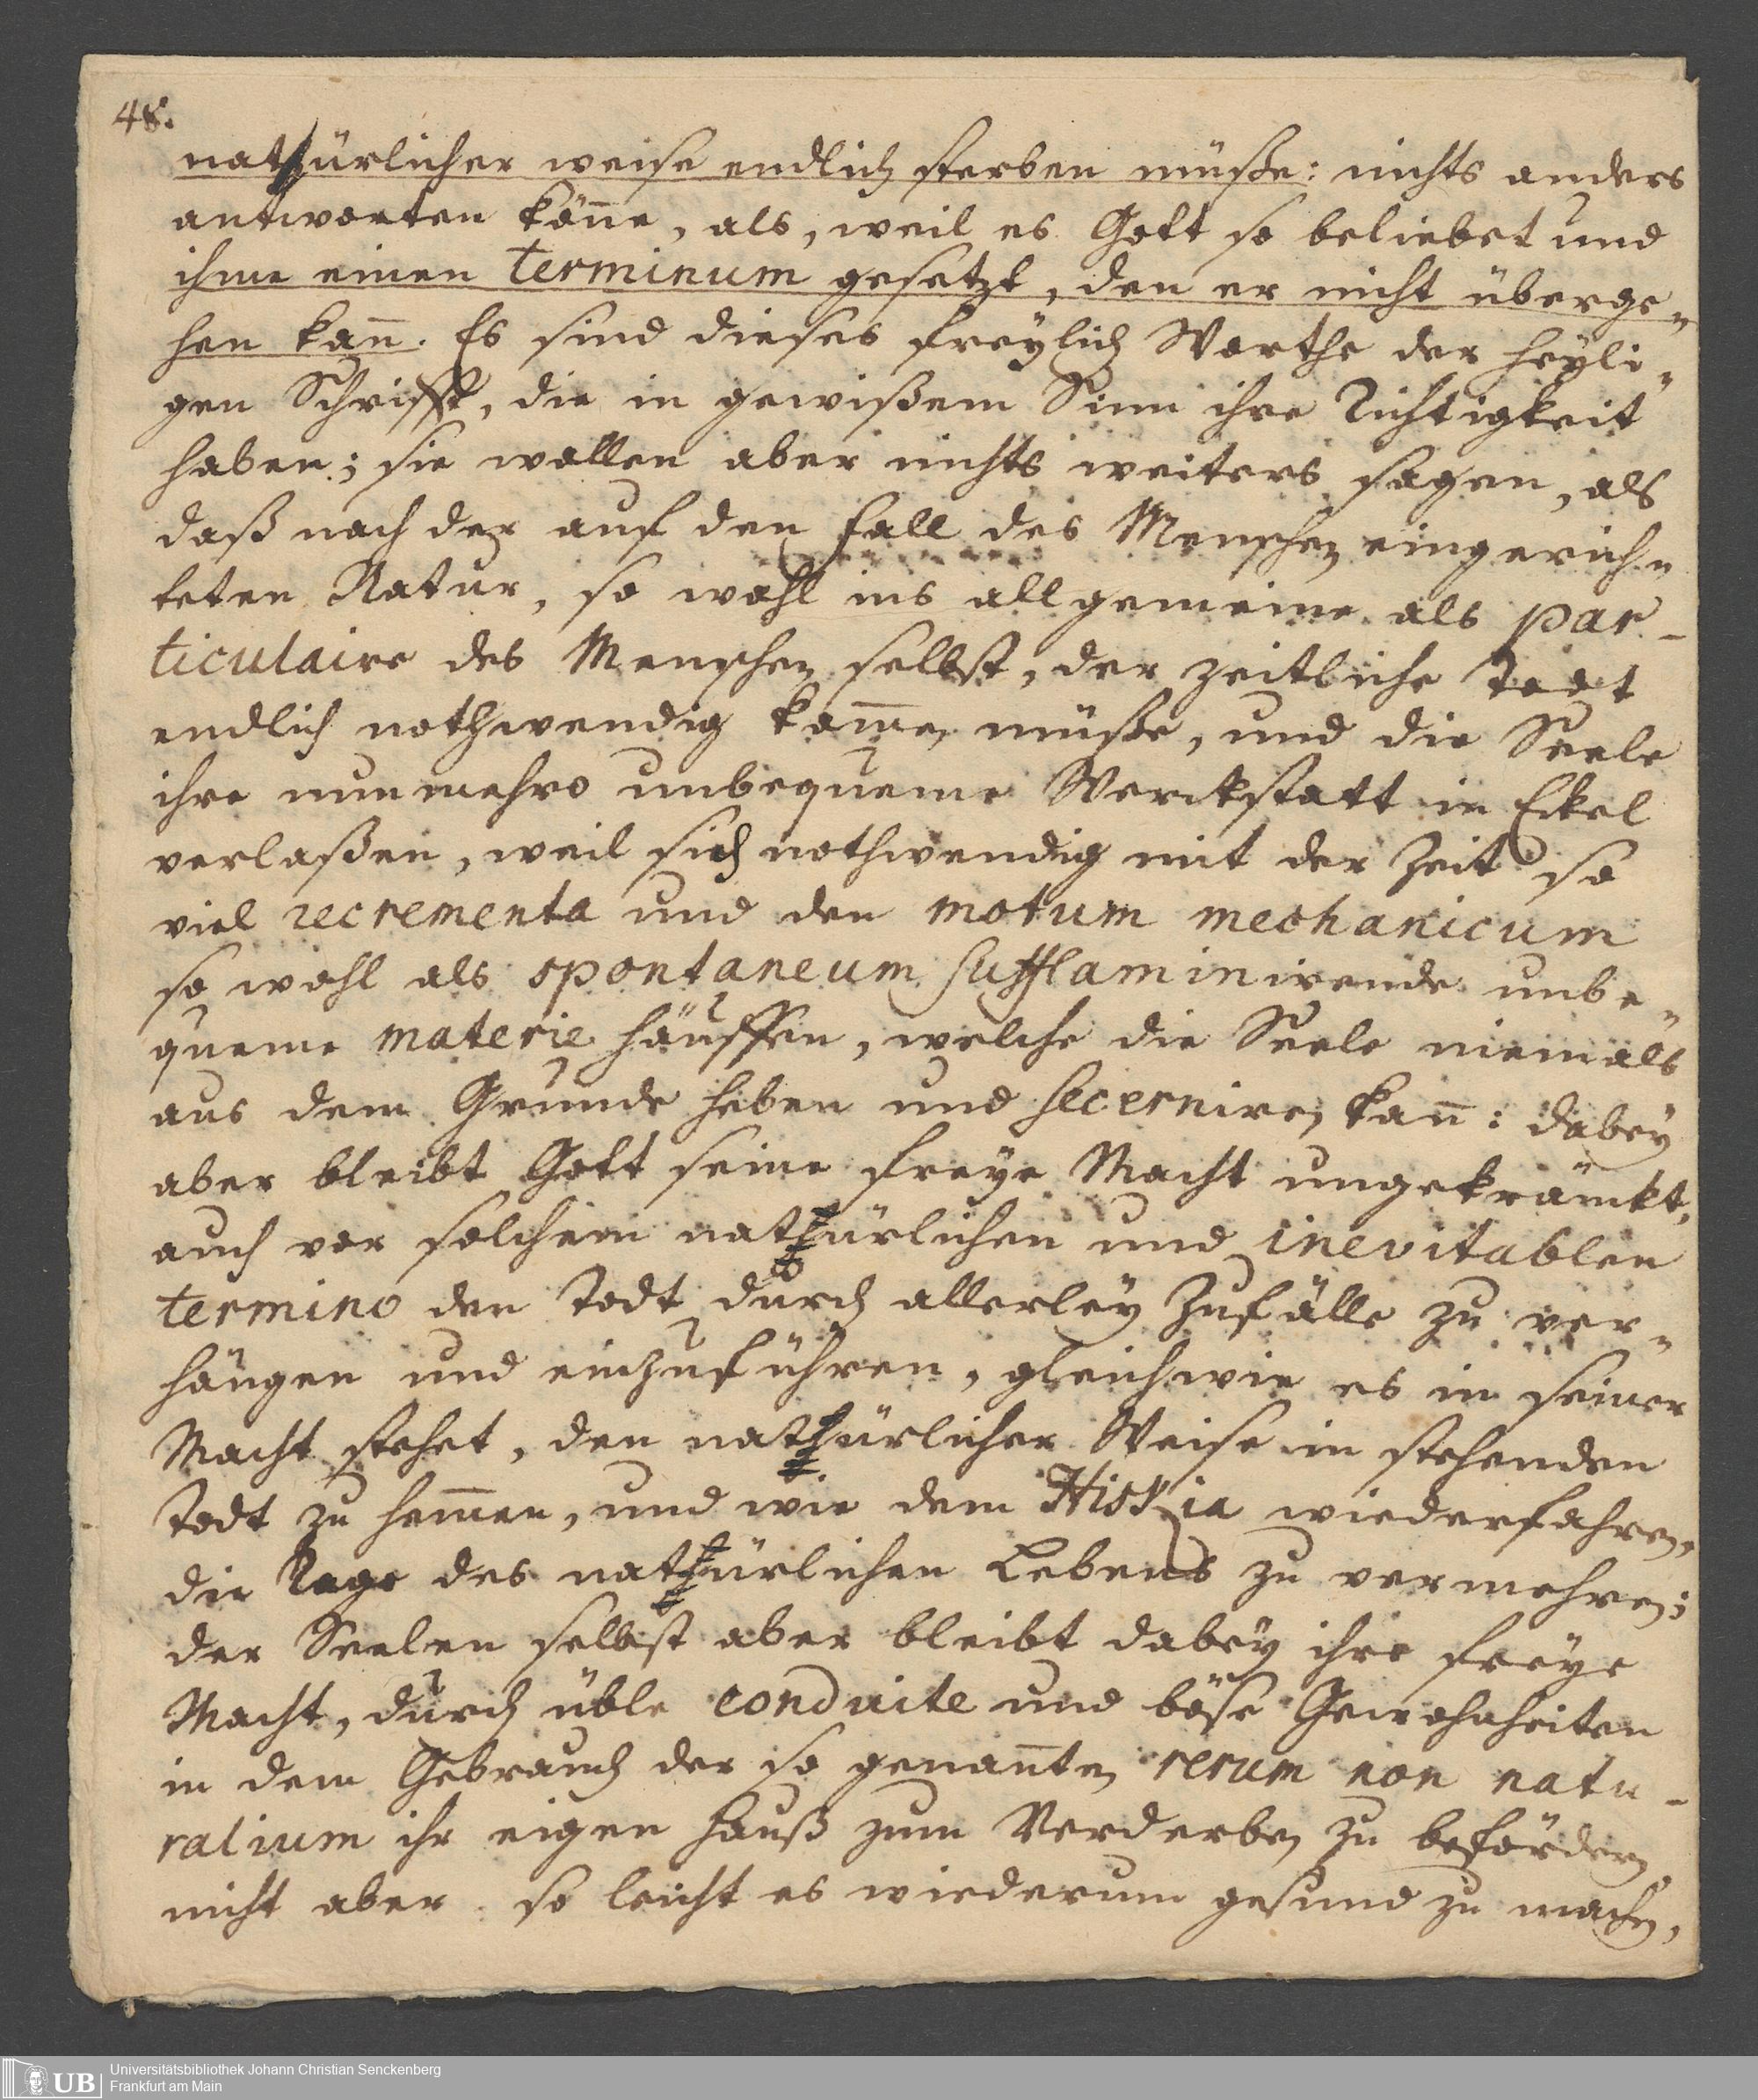 48.
natürlicher weise endlich sterben müße: nichts anders
antworten köñe, als, weil es Gott so beliebet und
ihme einen terminum gesetzt, den er nicht überge„
hen kañ. Es sind dieses freylich Worthe der heyli„
gen Schrifft, die in gewißem Sinn ihre Richtigkeit
haben; sie wollen aber nichts weiters sagen, als
daß nach der auf den Fall des Menschen eingerich„
teten Natur, so wohl ins allgemeine als par-
ticulaire des Menschen selbst, der zeitliche Todt
endlich nothwendig kom̄en müße, und die Seele
ihre nunmehro unbequeme Werckstatt in Eckel
verlaßen, weil sich nothwendig mit der Zeit so
viel recrementa und den motum mechanicum
so wohl als spontaneum sufflaminirende unbe„
queme materie häuffen, welche die Seele niemals
aus dem Grunde heben und secerniren kañ: dabey
aber bleibt Gott seine freye Macht ungekränkt,
auch vor solchem natürlichen und inevitablen
termino den Todt durch allerley Zufälle zu ver„
hängen und einzuführen, gleichwie es in seiner
Macht stehet, den natürlicher Weise in stehenden
Todt zu hem̄en, und wie dem Hiskia wiederfahren,
die Tage des natürlichen Lebens zu vermehren;
der Seelen selbst aber bleibt dabey ihre freye
Macht, durch üble conduite und böse Gewohnheiten
in dem Gebrauch der so genañten rerum non natu-
ralium ihr eigen Hauß zum Verderben zu befördern,
nicht aber so leicht es wiederum gesund zu machen,
UB
Universitätsbibliothek Johann Christian Senckenberg
Frankfurt am Main